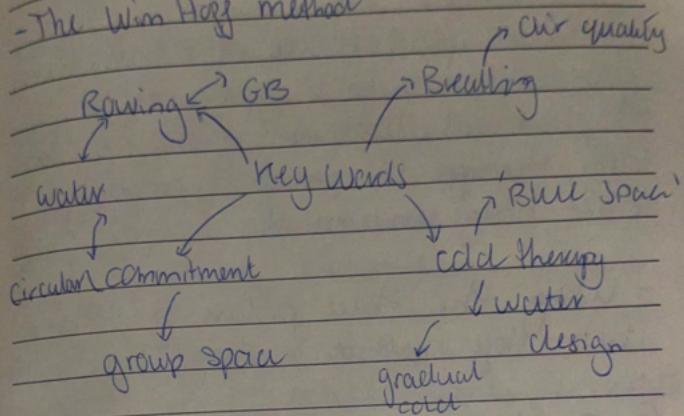 - The Wim Hoff method
air quality
Rowing GB Breathing
Key words
water 'Blue space'
circular commitment cold therapy
water
group space design
gradual
cold